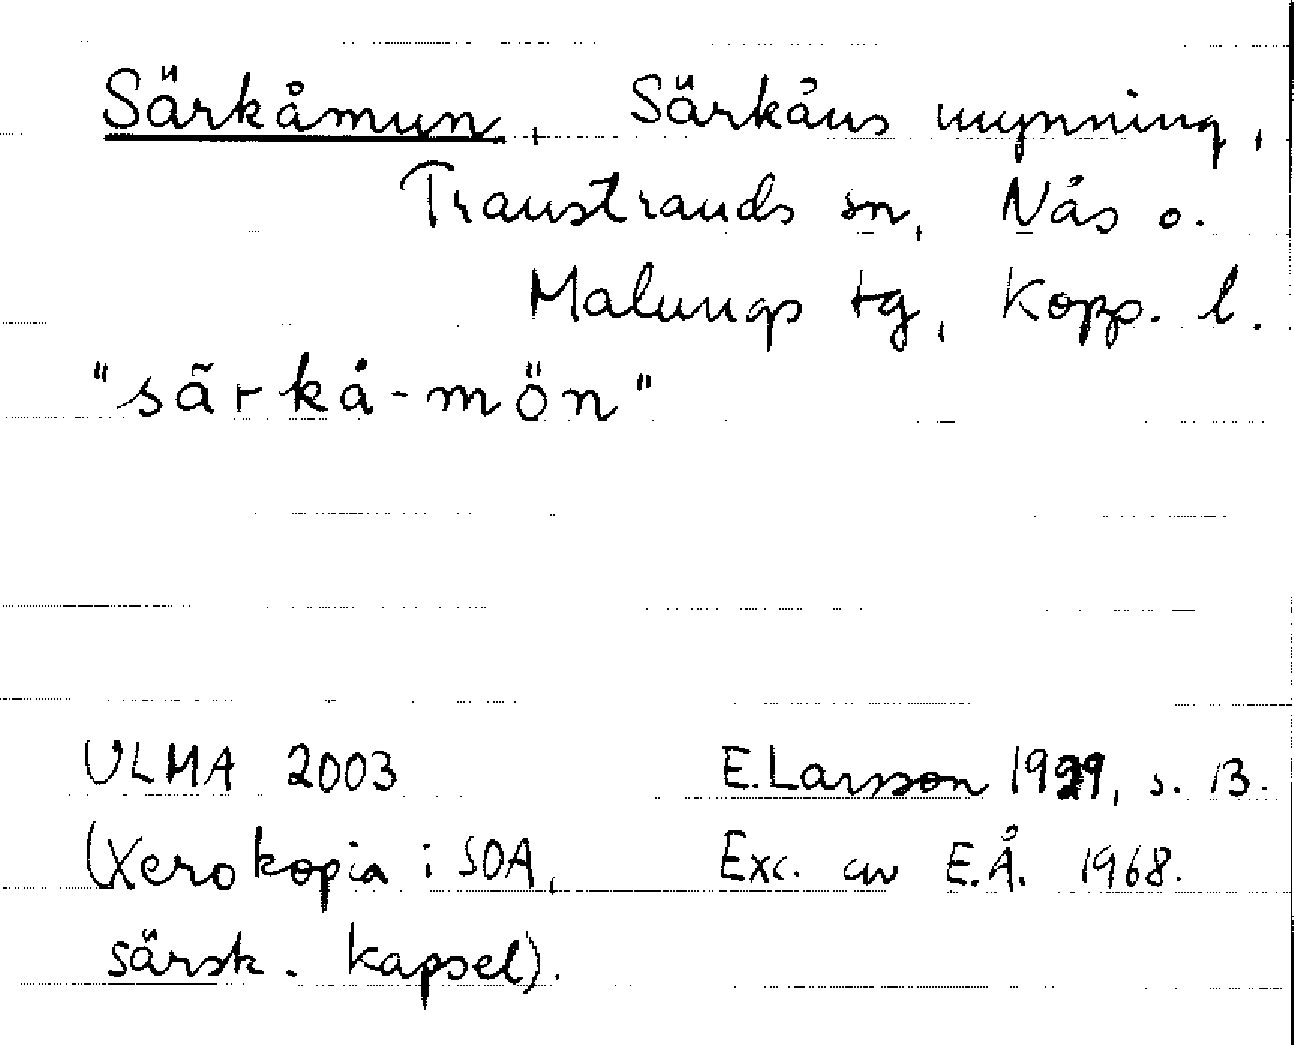 Särkåmun, Särkåns mynning,
Transtrands sn, Nås o.
Malungs tg, Kopp. l.
"särkå-mön"
ULMA 2003 E. Larsson 1929, s. 13.
(Xerokopia i SOA, Exc. av E.Å. 1968.
särsk. kapsel).